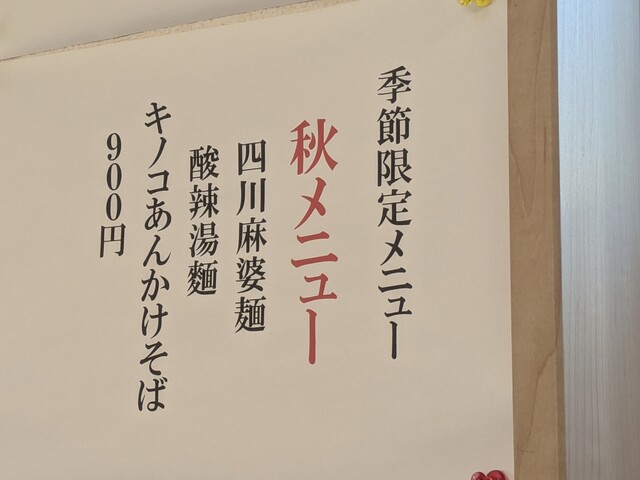 季節限定メニュー
秋メニュー
四川麻婆麺
酸辣湯麺
キノコあんかけそば
900円